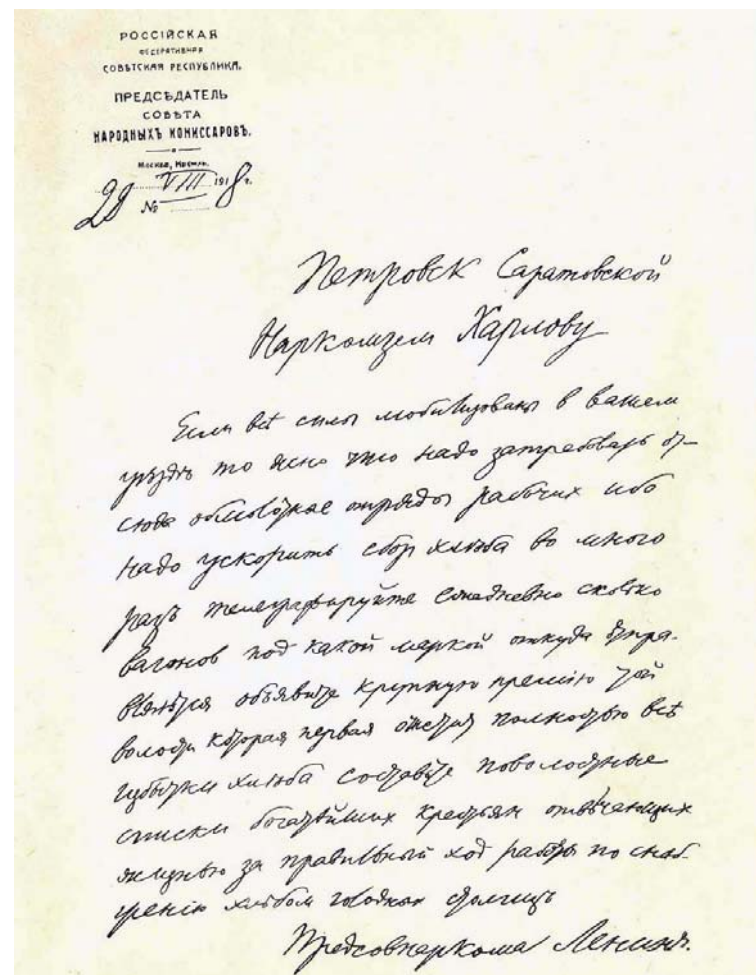 РОССІЙСКАЯ
ФЕДЕРАТИВНАЯ
СОВѢТСКАЯ РЕСПУБЛИКА.
ПРЕДСѢДАТЕЛЬ
СОВѢТА
НАРОДНЫХЪ КОМИССАРОВЪ.
Москва, Кремль.
28 VIII 1918 г.
№
Петровск Саратовской
Наркомзем Харлову
Если всѣ силы мобилизованы в вашем
уѣздѣ то ясно что надо затребовать от-
сюда обильные отряды рабочих ибо
надо ускорить сбор хлѣба во много
разъ телеграфируйте ежедневно сколько
вагонов под какой маркой откуда отпра-
вляется объявите крупную премію той
волости которая первая очистит полностью всѣ
избытки хлѣба составьте поволостные
списки богатѣйших крестьян отвѣчающих
жизнью за правильный ход работы по снаб-
женію хлѣбом голодных столицъ
Предсовнаркома Ленинъ.